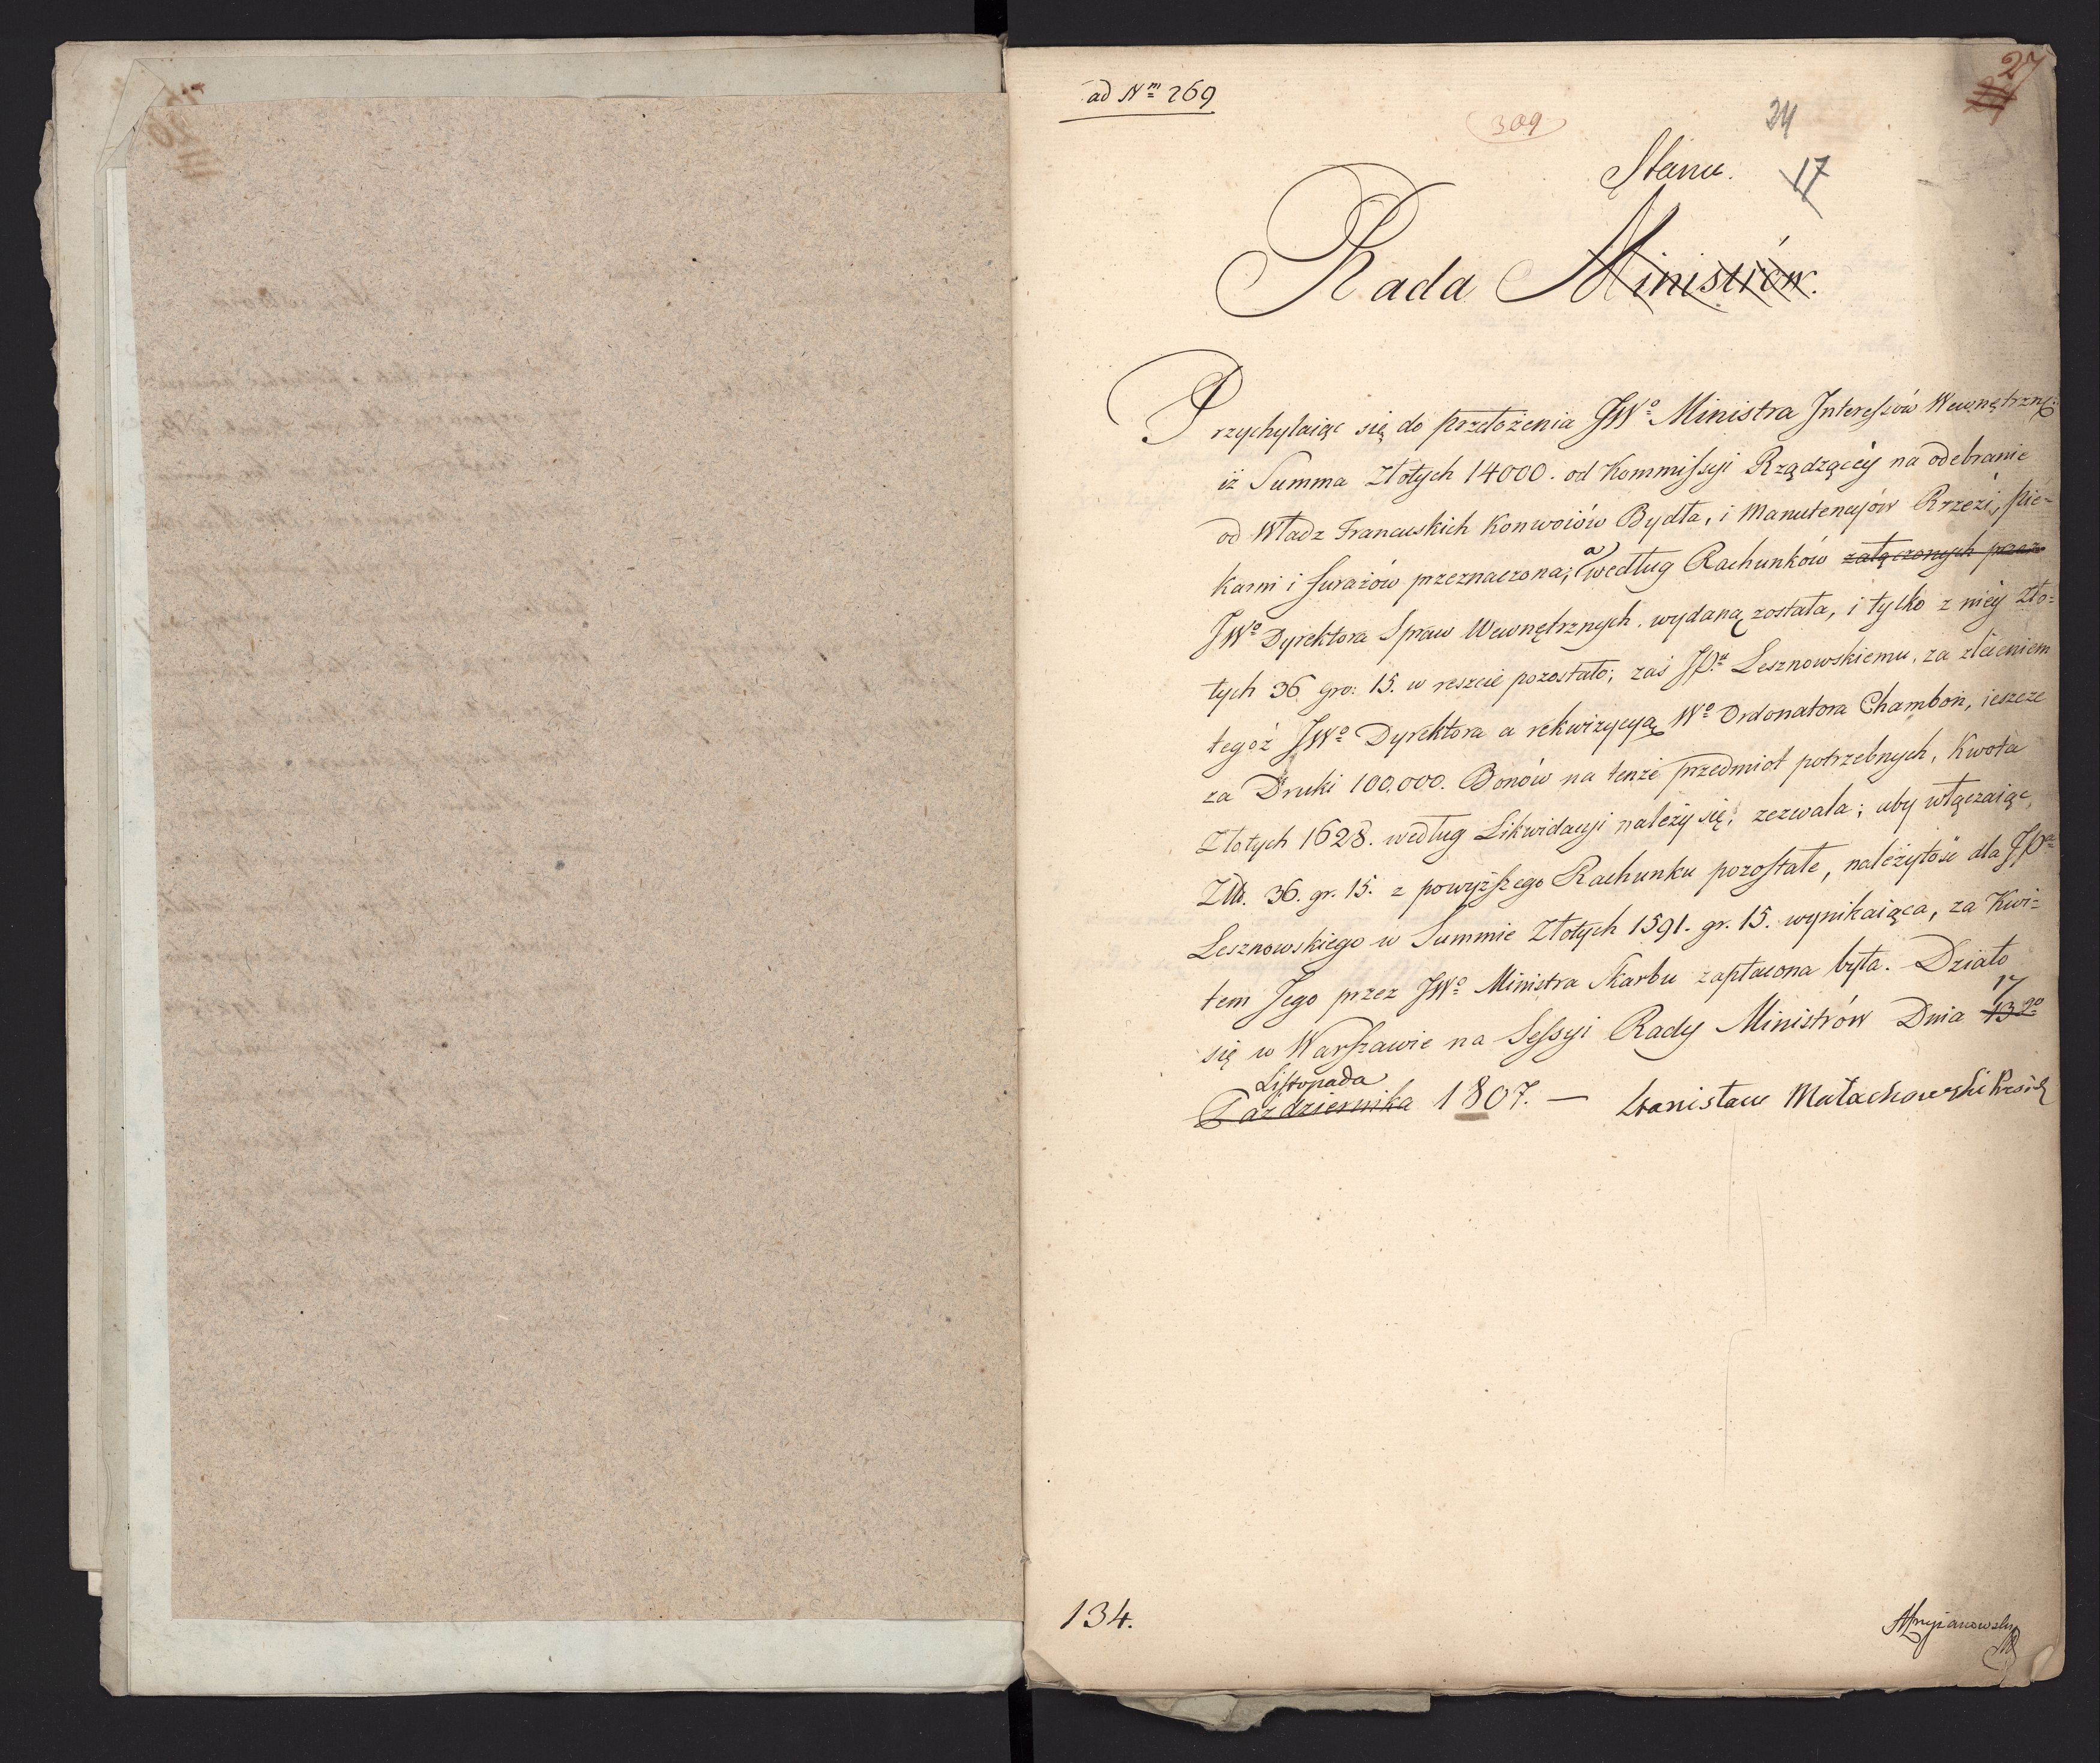 ad Nm 269
27
309
24
17
Stanu.
Rada Ministrów.
Przychylaiąc się do przełożenia JWo Ministra Interessów Wewnętrzny:
iż Summa Złotych 14000. od Kommissyi Rządzącéy na odebranie
od Władz Francuskich Konwoiów Bydła, i Manutencyów Rzezi, pie-
karni i furażów przeznaczona; a według Rachunków załączonych przez
JWo Dyrektora Spraw Wewnętrznych. wydaną została, i tylko z niéy Zło-
tych 36 gro: 15. w reszcie pozostało; zaś JPu Lesznowskiemu, za zleceniem
tegoż JWo Dyrektora a rekwizycyą Wo Ordonatora Chambon, ieszcze
za Druki 100,000. Bonów na tenże przedmiot potrzebnych, Kwota
Złotych 1628. według Likwidacyi należy się; zezwala; aby włączaiąc
Złt. 36. gr. 15. z powyższego Rachunku pozostałe, należytość dla JPa
Lesznowskiego w Summie Złotych 1591. gr. 15. wynikaiąca, za Kwi-
tem Jego przez JWo Ministra Skarbu zapłacona była. Działo
się w Warszawie na Sessyi Rady Ministrów Dnia 13go 17
Listopada
Października 1807. — Stanisław Małachowski Prezes
134.